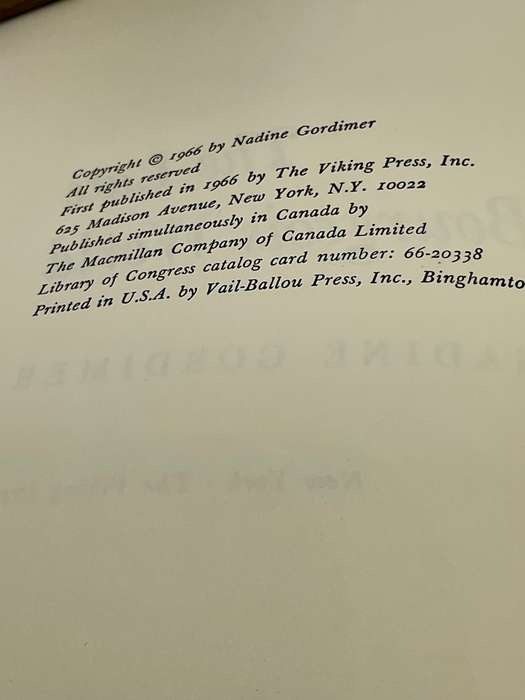 Copyright © 1966 by Nadine Gordimer
All rights reserved
First published in 1966 by The Viking Press, Inc.
625 Madison Avenue, New York, N.Y. 10022
Published simultaneously in Canada by
The Macmillan Company of Canada Limited
Library of Congress catalog card number: 66-20338
Printed in U.S.A. by Vail-Ballou Press, Inc., Binghamto